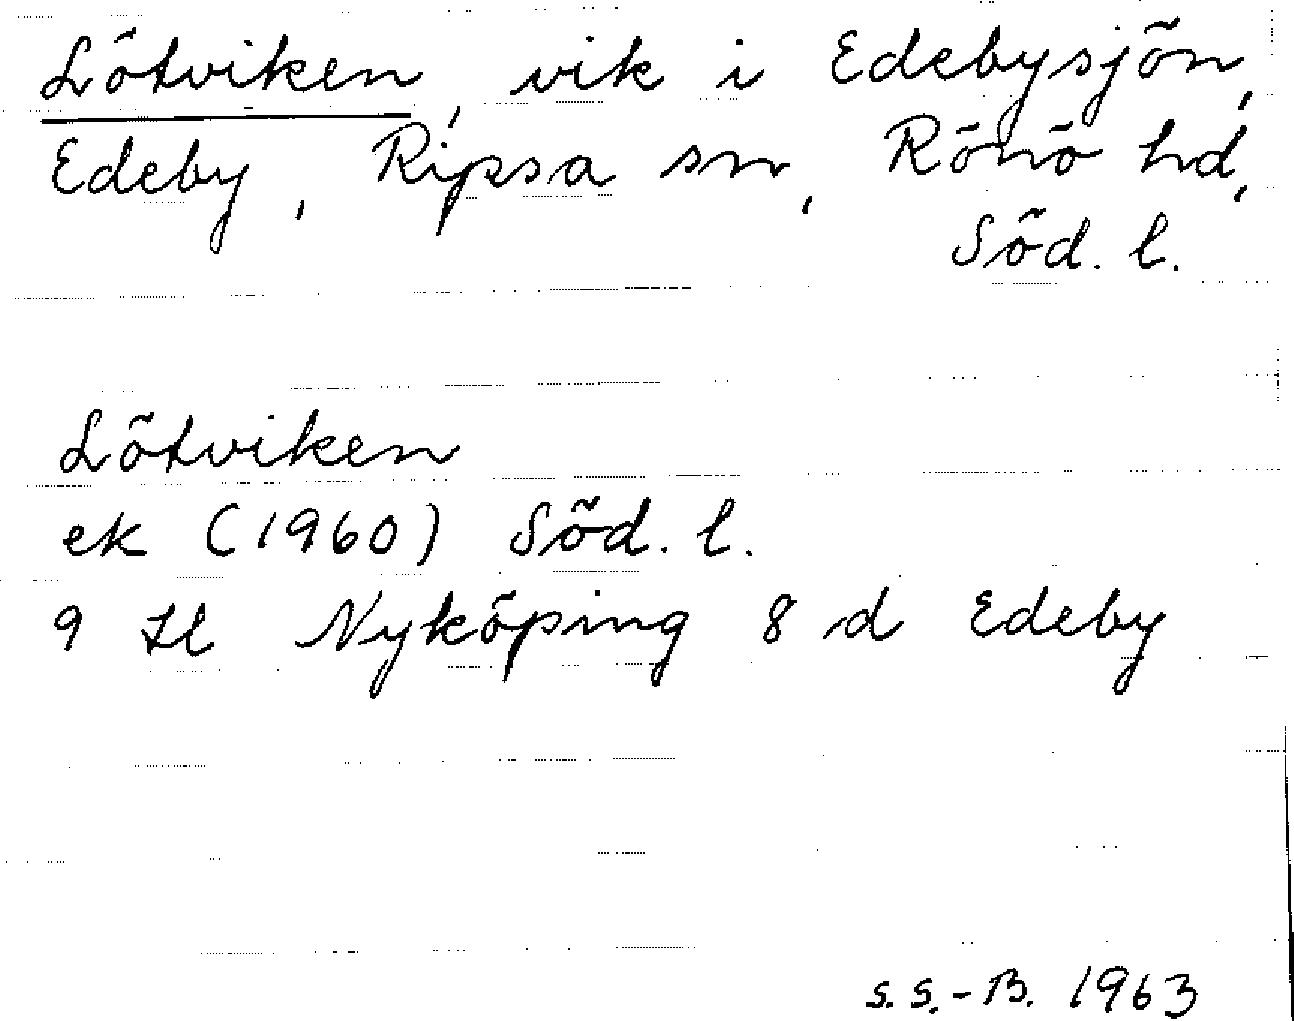 Lötviken, vik i Edebysjön,
Edeby, Ripsa sn, Rönö hd,
Söd. l.
Lötviken
ek (1960) Söd. l.
9 H Nyköping 8 d Edeby
S.S.-B. 1963